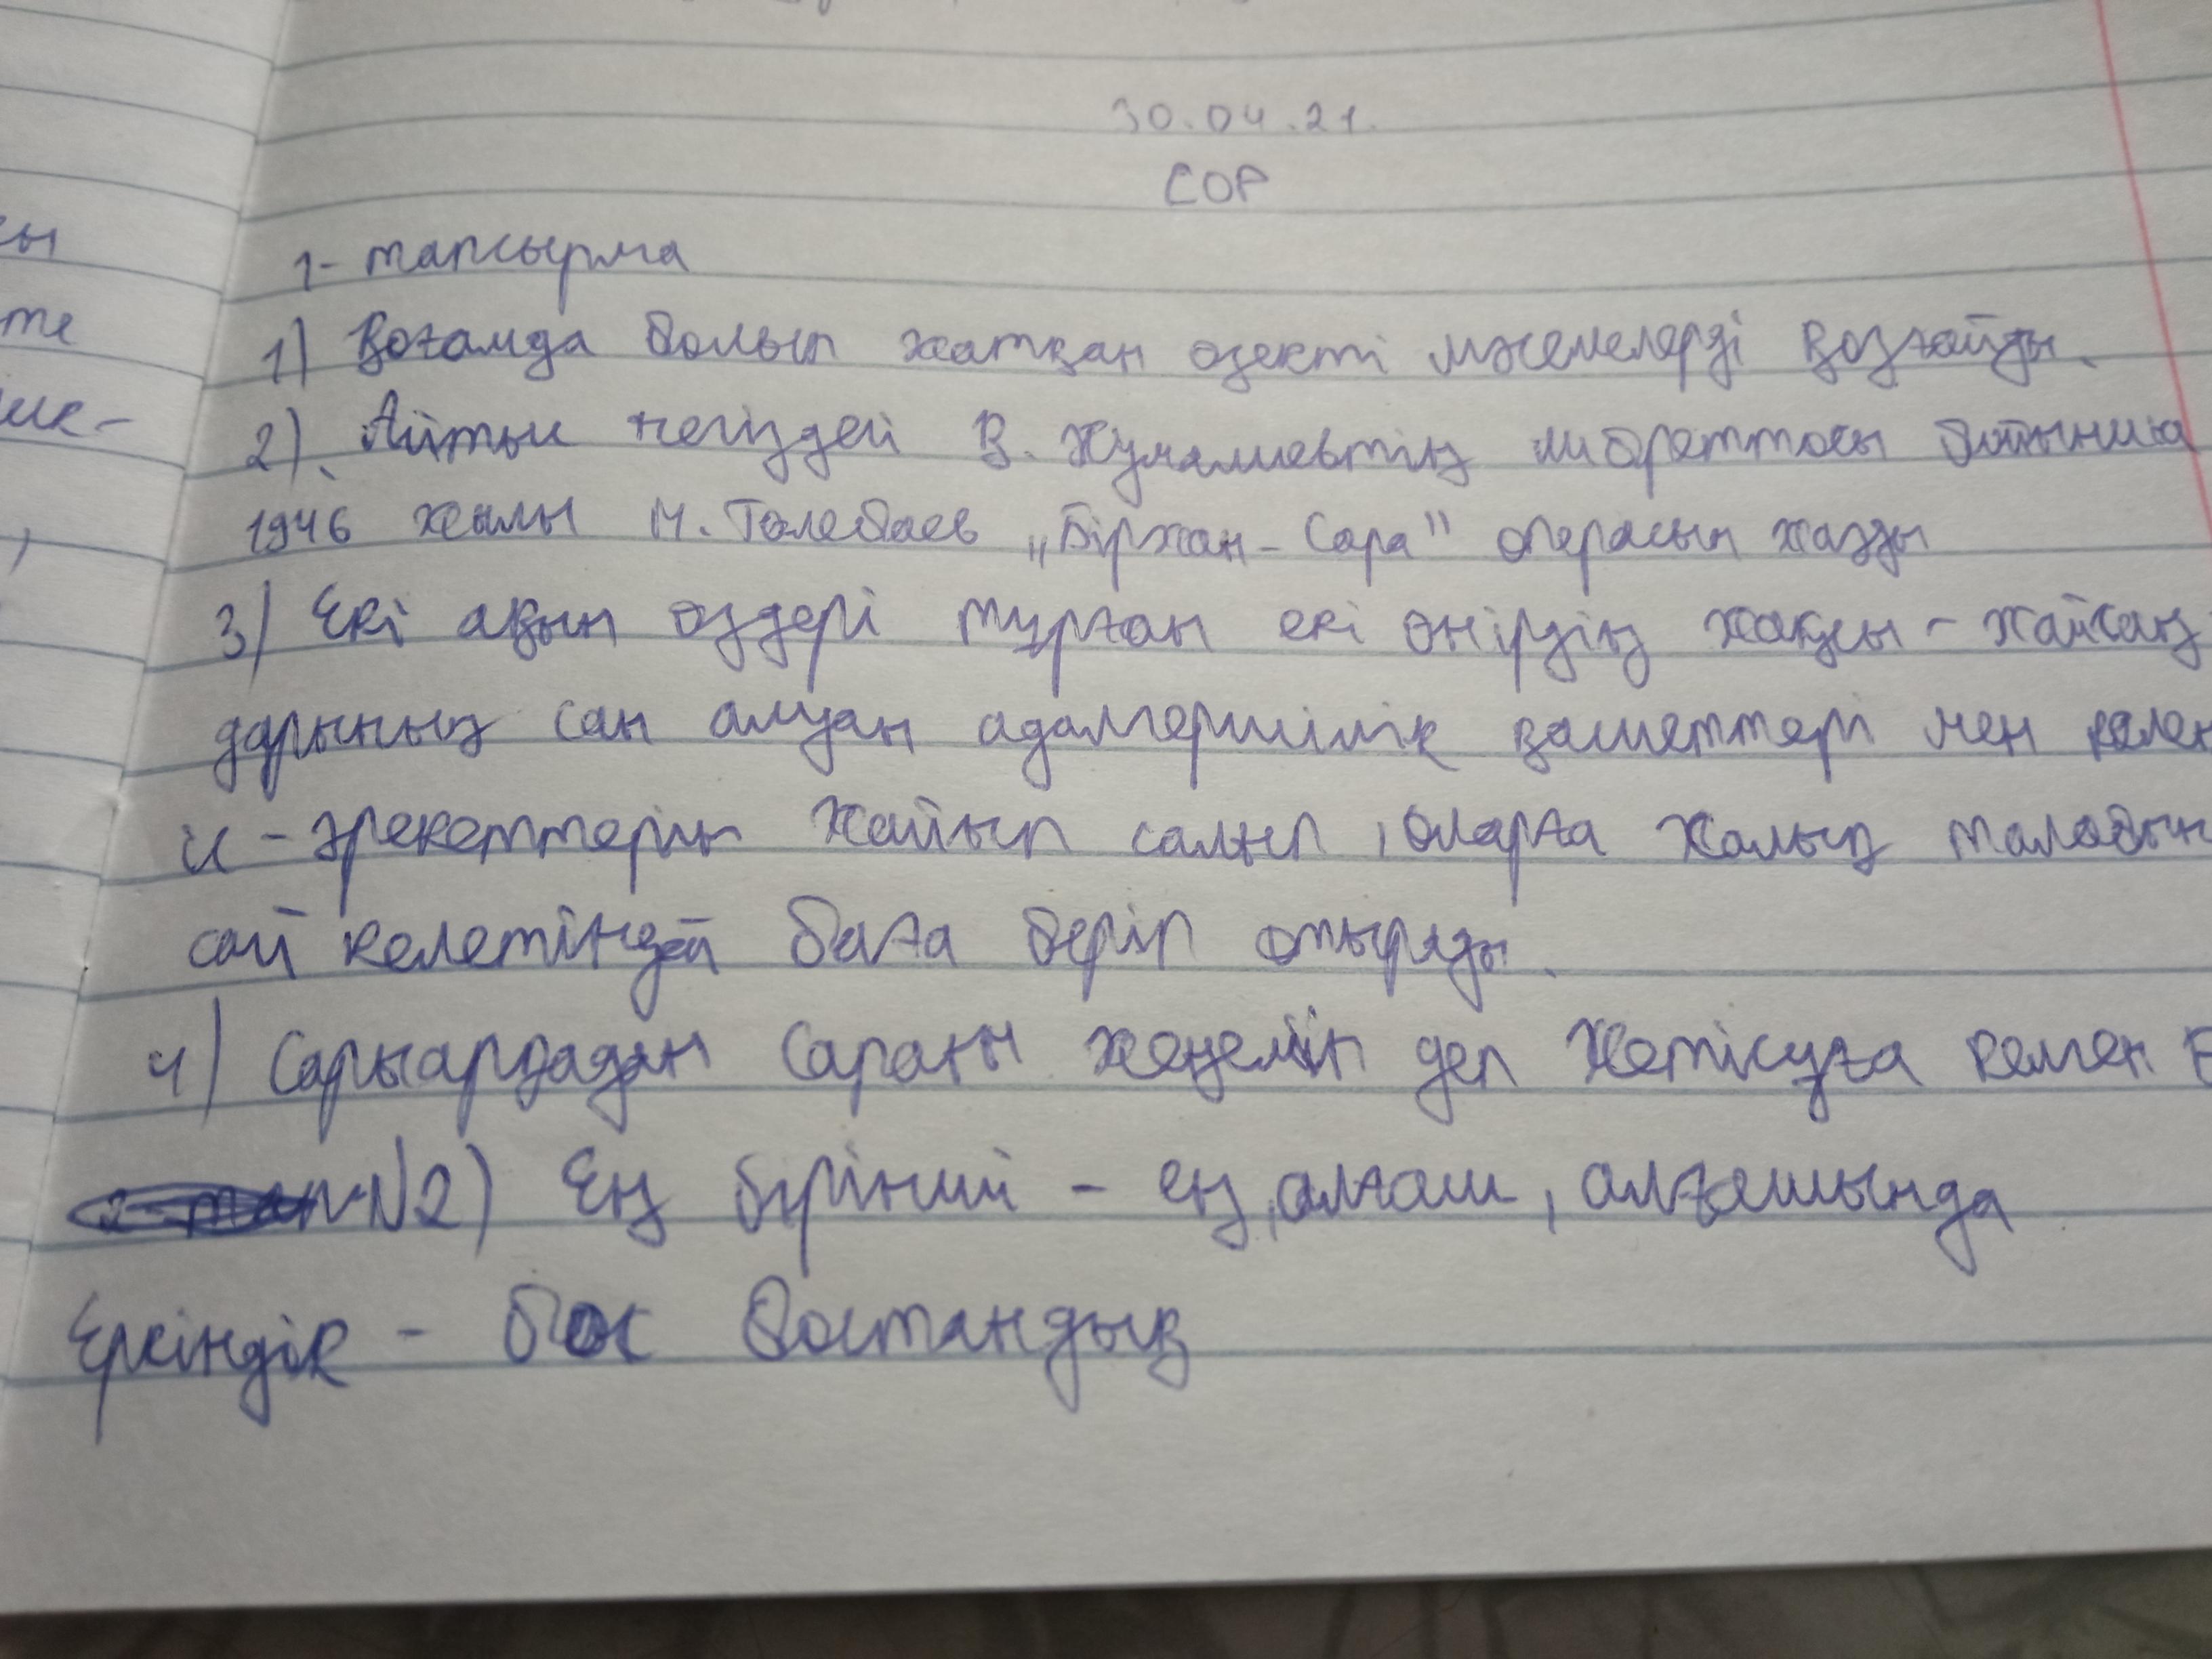 30.04.21.
СОР
1- тапсырма
1) Қоғамда болып жатқан өзекті мәселелерді қозғайды.
2). Айтыс негіздей Қ. Жумалиевтің либреттосы бойынша
1946 жылы М. Төлебаев „Біржан-Сара" операсын жазды
3) Екі ақын өздері тұрған екі өнірдің жақсы - жайсаң
дарының сан алуан адамгершілік қасиеттері мен келен
іс - әрекеттерін жайып салып, оларға халық талабын
сай келетіндей баға беріп отырады.
4) Сарыарқадан Сараны жеңемін деп Жетісуға келген
№2) Ең бірінші - ең, алғаш, алғашында
Еркіндік - бос бостандық
сы
те
ик-
,